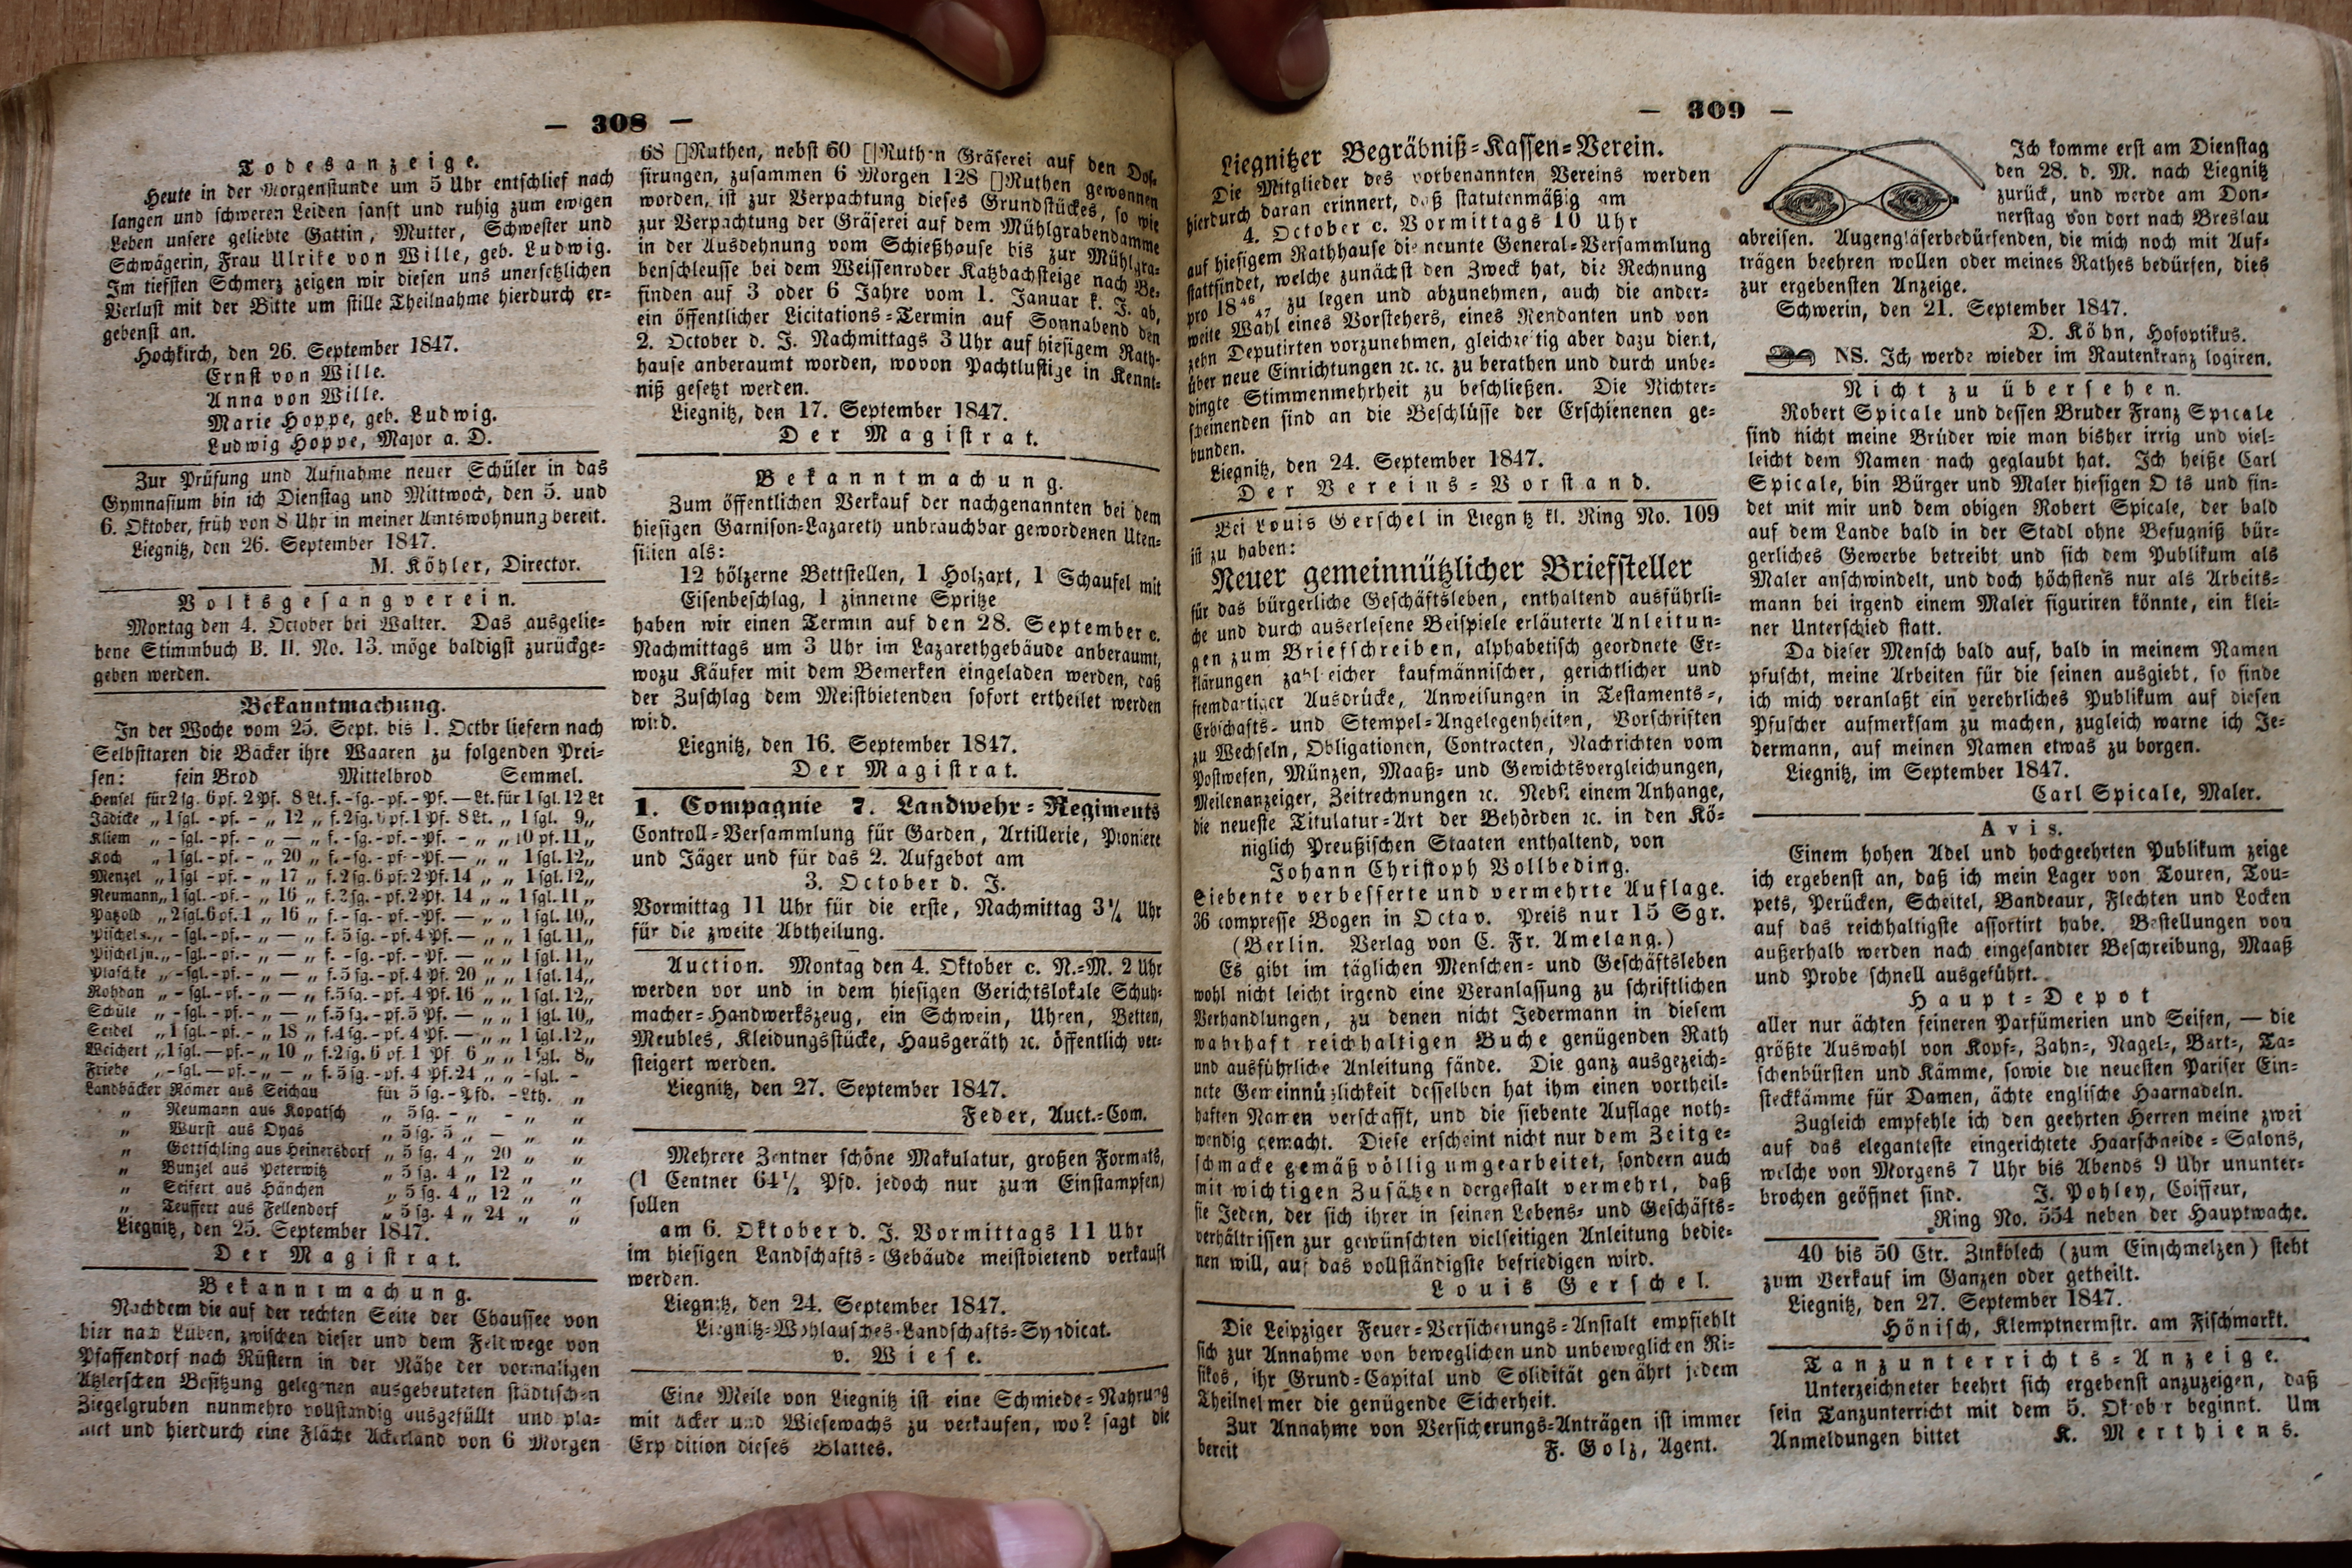 — 308 —
Todesanzeige.
Heute in der Morgenstunde um 5 Uhr entschlief nach
langen und schweren Leiden sanft und ruhig zum ewigen
Leben unsere geliebte Gattin, Mutter, Schwester und
Schwägerin, Frau Ulrike von Wille, geb. Ludwig.
Im tiefsten Schmerz zeigen wir diesen uns unersetzlichen
Verlust mit der Bitte um stille Theilnahme hierdurch er-
gebenst an.
Hochkirch, den 26. September 1847.
Ernst von Wille.
Anna von Wille.
Marie Hoppe, geb. Ludwig.
Ludwig Hoppe, Major a. D.
Zur Prüfung und Aufnahme neuer Schüler in das
Gymnasium bin ich Dienstag und Mittwoch, den 5. und
6. Oktober, früh von 8 Uhr in meiner Amtswohnung bereit.
Liegnitz, den 26. September 1847.
M. Köhler, Director.
Volksgesangverein.
Montag den 4. October bei Walter. Das ausgelie-
hene Stimmbuch B. II. No. 13. möge baldigst zurückge-
geben werden.
Bekanntmachung.
In der Woche vom 25. Sept. bis 1. Octbr liefern nach
Selbsttaxen die Bäcker ihre Waaren zu folgenden Prei-
sen: fein Brod Mittelbrod Semmel.
Hensel für 2 sg. 6 pf. 2 Pf. 8 Lt. f. - sg. - pf. - Pf. — Lt. für 1 sgl. 12 Lt
Jädicke „ 1 sgl. - pf. - „ 12 „ f. 2 sg. 6 pf. 1 Pf. 8 Lt. „ 1 sgl. 9 „
Kliem „ - sgl. - pf. - „ — „ f. - sg. - pf. - Pf. - „ „ 10 pf. 11 „
Koch „ 1 sgl. - pf. - „ 20 „ f. - sg. - pf. - Pf. — „ „ 1 sgl. 12 „
Menzel „ 1 sgl - pf. - „ 17 „ f. 2 sg. 6 pf. 2 Pf. 14 „ „ 1 sgl. 12 „
Neumann „ 1 sgl. - pf. - „ 16 „ f. 2 sg. - pf. 2 Pf. 14 „ „ 1 sgl. 11 „
Pätzold „ 2 sgl. 6 pf. 1 „ 16 „ f. - sg. - pf. - Pf. — „ „ 1 sgl. 10 „
Pischel s. „ - sgl. - pf. - „ — „ f. 5 sg. - pf. 4 Pf. — „ „ 1 sgl. 11 „
Pischel jn. „ - sgl. - pf. - „ — „ f. - sg. - pf. - Pf. — „ „ 1 sgl. 11 „
Plaschke „ - sgl. - pf. - „ — „ f. 5 sg. - pf. 4 Pf. 20 „ „ 1 sgl. 14 „
Rohdan „ - sgl. - pf. - „ — „ f. 5 sg. - pf. 4 Pf. 16 „ „ 1 sgl. 12 „
Schüle „ - sgl. - pf. - „ — „ f. 5 sg. - pf. 5 Pf. — „ „ 1 sgl. 10 „
Seidel „ 1 sgl. - pf. - „ 18 „ f. 4 sg. - pf. 4 Pf. — „ „ 1 sgl. 12 „
Weichert „ 1 sgl. — pf. - „ 10 „ f. 2 sg. 6 pf. 1 Pf. 6 „ „ 1 sgl. 8 „
Friebe „ - sgl. — pf. - „ — „ f. 5 sg. - pf. 4 Pf. 24 „ „ - sgl. -
Landbäcker Römer aus Seichau für 5 sg. - Pfd. - Lth. „
„ Neumann aus Kopatsch „ 5 sg. - „ - „ „
„ Wurst aus Dyas „ 5 sg. 5 „ — „ „
„ Gottschling aus Heinersdorf „ 5 sg. 4 „ 20 „ „
„ Bunzel aus Peterwitz „ 5 sg. 4 „ 12 „ „
„ Seifert aus Hänchen „ 5 sg. 4 „ 12 „ „
„ Teuffert aus Fellendorf „ 5 sg. 4 „ 24 „ „
Liegnitz, den 25. September 1847.
Der Magistrat.
Bekanntmachung.
Nachdem die auf der rechten Seite der Chaussee von
hier nach Lüben, zwischen dieser und dem Feldwege von
Pfaffendorf nach Rüstern in der Nähe der vormaligen
Atzlerschen Besitzung gelegenen ausgebeuteten städtischen
Ziegelgruben nunmehro vollständig ausgefüllt und pla-
nirt und hierdurch eine Fläche Ackerland von 6 Morgen
68 []Ruthen, nebst 60 []Ruthen Gräserei auf den Dos-
sirungen, zusammen 6 Morgen 128 []Ruthen gewonnen
worden, ist zur Verpachtung dieses Grundstückes, so wie
zur Verpachtung der Gräserei auf dem Mühlgrabendamme
in der Ausdehnung vom Schießhause bis zur Mühlgra-
benschleusse bei dem Weissenroder Katzbachsteige nach Be-
finden auf 3 oder 6 Jahre vom 1. Januar k. J. ab,
ein öffentlicher Licitations-Termin auf Sonnabend den
2. October d. J. Nachmittags 3 Uhr auf hiesigem Rath-
hause anberaumt worden, wovon Pachtlustige in Kennt-
niß gesetzt werden.
Liegnitz, den 17. September 1847.
Der Magistrat.
Bekanntmachung.
Zum öffentlichen Verkauf der nachgenannten bei dem
hiesigen Garnison-Lazareth unbrauchbar gewordenen Uten-
silien als:
12 hölzerne Bettstellen, 1 Holzaxt, 1 Schaufel mit
Eisenbeschlag, 1 zinnerne Spritze
haben wir einen Termin auf den 28. September c.
Nachmittags um 3 Uhr im Lazarethgebäude anberaumt,
wozu Käufer mit dem Bemerken eingeladen werden, daß
der Zuschlag dem Meistbietenden sofort ertheilet werden
wird.
Liegnitz, den 16. September 1847.
Der Magistrat.
1. Compagnie 7. Landwehr-Regiments
Controll-Versammlung für Garden, Artillerie, Pioniere
und Jäger und für das 2. Aufgebot am
3. October d. J.
Vormittag 11 Uhr für die erste, Nachmittag 3½ Uhr
für die zweite Abtheilung.
Auction. Montag den 4. Oktober c. N.-M. 2 Uhr
werden vor und in dem hiesigen Gerichtslokale Schuh-
macher-Handwerkszeug, ein Schwein, Uhren, Betten,
Meubles, Kleidungsstücke, Hausgeräth ꝛc. öffentlich ver-
steigert werden.
Liegnitz, den 27. September 1847.
Feder, Auct.-Com.
Mehrere Zentner schöne Makulatur, großen Formats,
(1 Centner 64½ Pfd. jedoch nur zum Einstampfen)
sollen
am 6. Oktober d. J. Vormittags 11 Uhr
im hiesigen Landschafts-Gebäude meistbietend verkauft
werden.
Liegnitz, den 24. September 1847.
Liegnitz-Wohlausches-Landschafts-Syndicat.
v. Wiese.
Eine Meile von Liegnitz ist eine Schmiede-Nahrung
mit Acker und Wiesewachs zu verkaufen, wo? sagt die
Expedition dieses Blattes.
— 309 —
Liegnitzer Begräbniß-Kassen-Verein.
Die Mitglieder des vorbenannten Vereins werden
hierdurch daran erinnert, daß statutenmäßig am
4. October c. Vormittags 10 Uhr
auf hiesigem Rathhause die neunte General-Versammlung
stattfindet, welche zunächst den Zweck hat, die Rechnung
pro 18 46/47 zu legen und abzunehmen, auch die ander-
weite Wahl eines Vorstehers, eines Rendanten und von
zehn Deputirten vorzunehmen, gleichzeitig aber dazu dient,
über neue Einrichtungen ꝛc. ꝛc. zu berathen und durch unbe-
dingte Stimmenmehrheit zu beschließen. Die Nichter-
scheinenden sind an die Beschlüsse der Erschienenen ge-
bunden.
Liegnitz, den 24. September 1847.
Der Vereins-Vorstand.
Bei Louis Gerschel in Liegnitz kl. Ring No. 109
ist zu haben:
Neuer gemeinnützlicher Briefsteller
für das bürgerliche Geschäftsleben, enthaltend ausführli-
che und durch auserlesene Beispiele erläuterte Anleitun-
gen zum Briefschreiben, alphabetisch geordnete Er-
klärungen zahlreicher kaufmännischer, gerichtlicher und
fremdartiger Ausdrücke, Anweisungen in Testaments-,
Erbschafts- und Stempel-Angelegenheiten, Vorschriften
zu Wechseln, Obligationen, Contracten, Nachrichten vom
Postwesen, Münzen, Maaß- und Gewichtsvergleichungen,
Meilenanzeiger, Zeitrechnungen ꝛc. Nebst einem Anhange,
die neueste Titulatur-Art der Behörden ꝛc. in den Kö-
niglich Preußischen Staaten enthaltend, von
Johann Christoph Vollbeding.
Siebente verbesserte und vermehrte Auflage.
36 compresse Bogen in Octav. Preis nur 15 Sgr.
(Berlin. Verlag von C. Fr. Amelang.)
Es gibt im täglichen Menschen- und Geschäftsleben
wohl nicht leicht irgend eine Veranlassung zu schriftlichen
Verhandlungen, zu denen nicht Jedermann in diesem
wahrhaft reichhaltigen Buche genügenden Rath
und ausführliche Anleitung fände. Die ganz ausgezeich-
nete Gemeinnützlichkeit desselben hat ihm einen vortheil-
haften Namen verschafft, und die siebente Auflage noth-
wendig gemacht. Diese erscheint nicht nur dem Zeitge-
schmacke gemäß völlig umgearbeitet, sondern auch
mit wichtigen Zusätzen dergestalt vermehrt, daß
sie Jeden, der sich ihrer in seinen Lebens- und Geschäfts-
verhältnissen zur gewünschten vielseitigen Anleitung bedie-
nen will, auf das vollständigste befriedigen wird.
Louis Gerschel.
Die Leipziger Feuer-Versicherungs-Anstalt empfiehlt
sich zur Annahme von beweglichen und unbeweglichen Ri-
sikos, ihr Grund-Capital und Solidität gewährt jedem
Theilnehmer die genügende Sicherheit.
Zur Annahme von Versicherungs-Anträgen ist immer
bereit F. Golz, Agent.
Ich komme erst am Dienstag
den 28. d. M. nach Liegnitz
zurück, und werde am Don-
nerstag von dort nach Breslau
abreisen. Augengläserbedürfenden, die mich noch mit Auf-
trägen beehren wollen oder meines Rathes bedürfen, dies
zur ergebensten Anzeige.
Schwerin, den 21. September 1847.
D. Köhn, Hofoptikus.
NS. Ich werde wieder im Rautenkranz logiren.
Nicht zu übersehen.
Robert Spicale und dessen Bruder Franz Spicale
sind nicht meine Brüder wie man bisher irrig und viel-
leicht dem Namen nach geglaubt hat. Ich heiße Carl
Spicale, bin Bürger und Maler hiesigen O ts und fin-
det mit mir und dem obigen Robert Spicale, der bald
auf dem Lande bald in der Stadl ohne Befugniß bür-
gerliches Gewerbe betreibt und sich dem Publikum als
Maler anschwindelt, und doch höchstens nur als Arbeits-
mann bei irgend einem Maler figuriren könnte, ein klei-
ner Unterschied statt.
Da dieser Mensch bald auf, bald in meinem Namen
pfuscht, meine Arbeiten für die seinen ausgiebt, so finde
ich mich veranlaßt ein verehrliches Publikum auf diesen
Pfuscher aufmerksam zu machen, zugleich warne ich Je-
dermann, auf meinen Namen etwas zu borgen.
Liegnitz, im September 1847.
Carl Spicale, Maler.
Avis.
Einem hohen Adel und hochgeehrten Publikum zeige
ich ergebenst an, daß ich mein Lager von Touren, Tou-
pets, Perücken, Scheitel, Bandeaur, Flechten und Locken
auf das reichhaltigste assortirt habe. Bestellungen von
außerhalb werden nach eingesandter Beschreibung, Maaß
und Probe schnell ausgeführt.
Haupt-Depot
aller nur ächten feineren Parfümerien und Seifen, — die
größte Auswahl von Kopf-, Zahn-, Nagel-, Bart-, Ta-
schenbürsten und Kämme, sowie die neuesten Pariser Ein-
steckkämme für Damen, ächte englische Haarnadeln.
Zugleich empfehle ich den geehrten Herren meine zwei
auf das eleganteste eingerichtete Haarschneide-Salons,
welche von Morgens 7 Uhr bis Abends 9 Uhr ununter-
brochen geöffnet sind. J. Pohley, Coiffeur,
Ring No. 554 neben der Hauptwache.
40 bis 50 Ctr. Zinkblech (zum Einschmelzen) steht
zum Verkauf im Ganzen oder getheilt.
Liegnitz, den 27. September 1847.
Hönisch, Klemptnermstr. am Fischmarkt.
Tanzunterrichts-Anzeige.
Unterzeichneter beehrt sich ergebenst anzuzeigen, daß
sein Tanzunterricht mit dem 5. Oktober beginnt. Um
Anmeldungen bittet K. Merthiens.